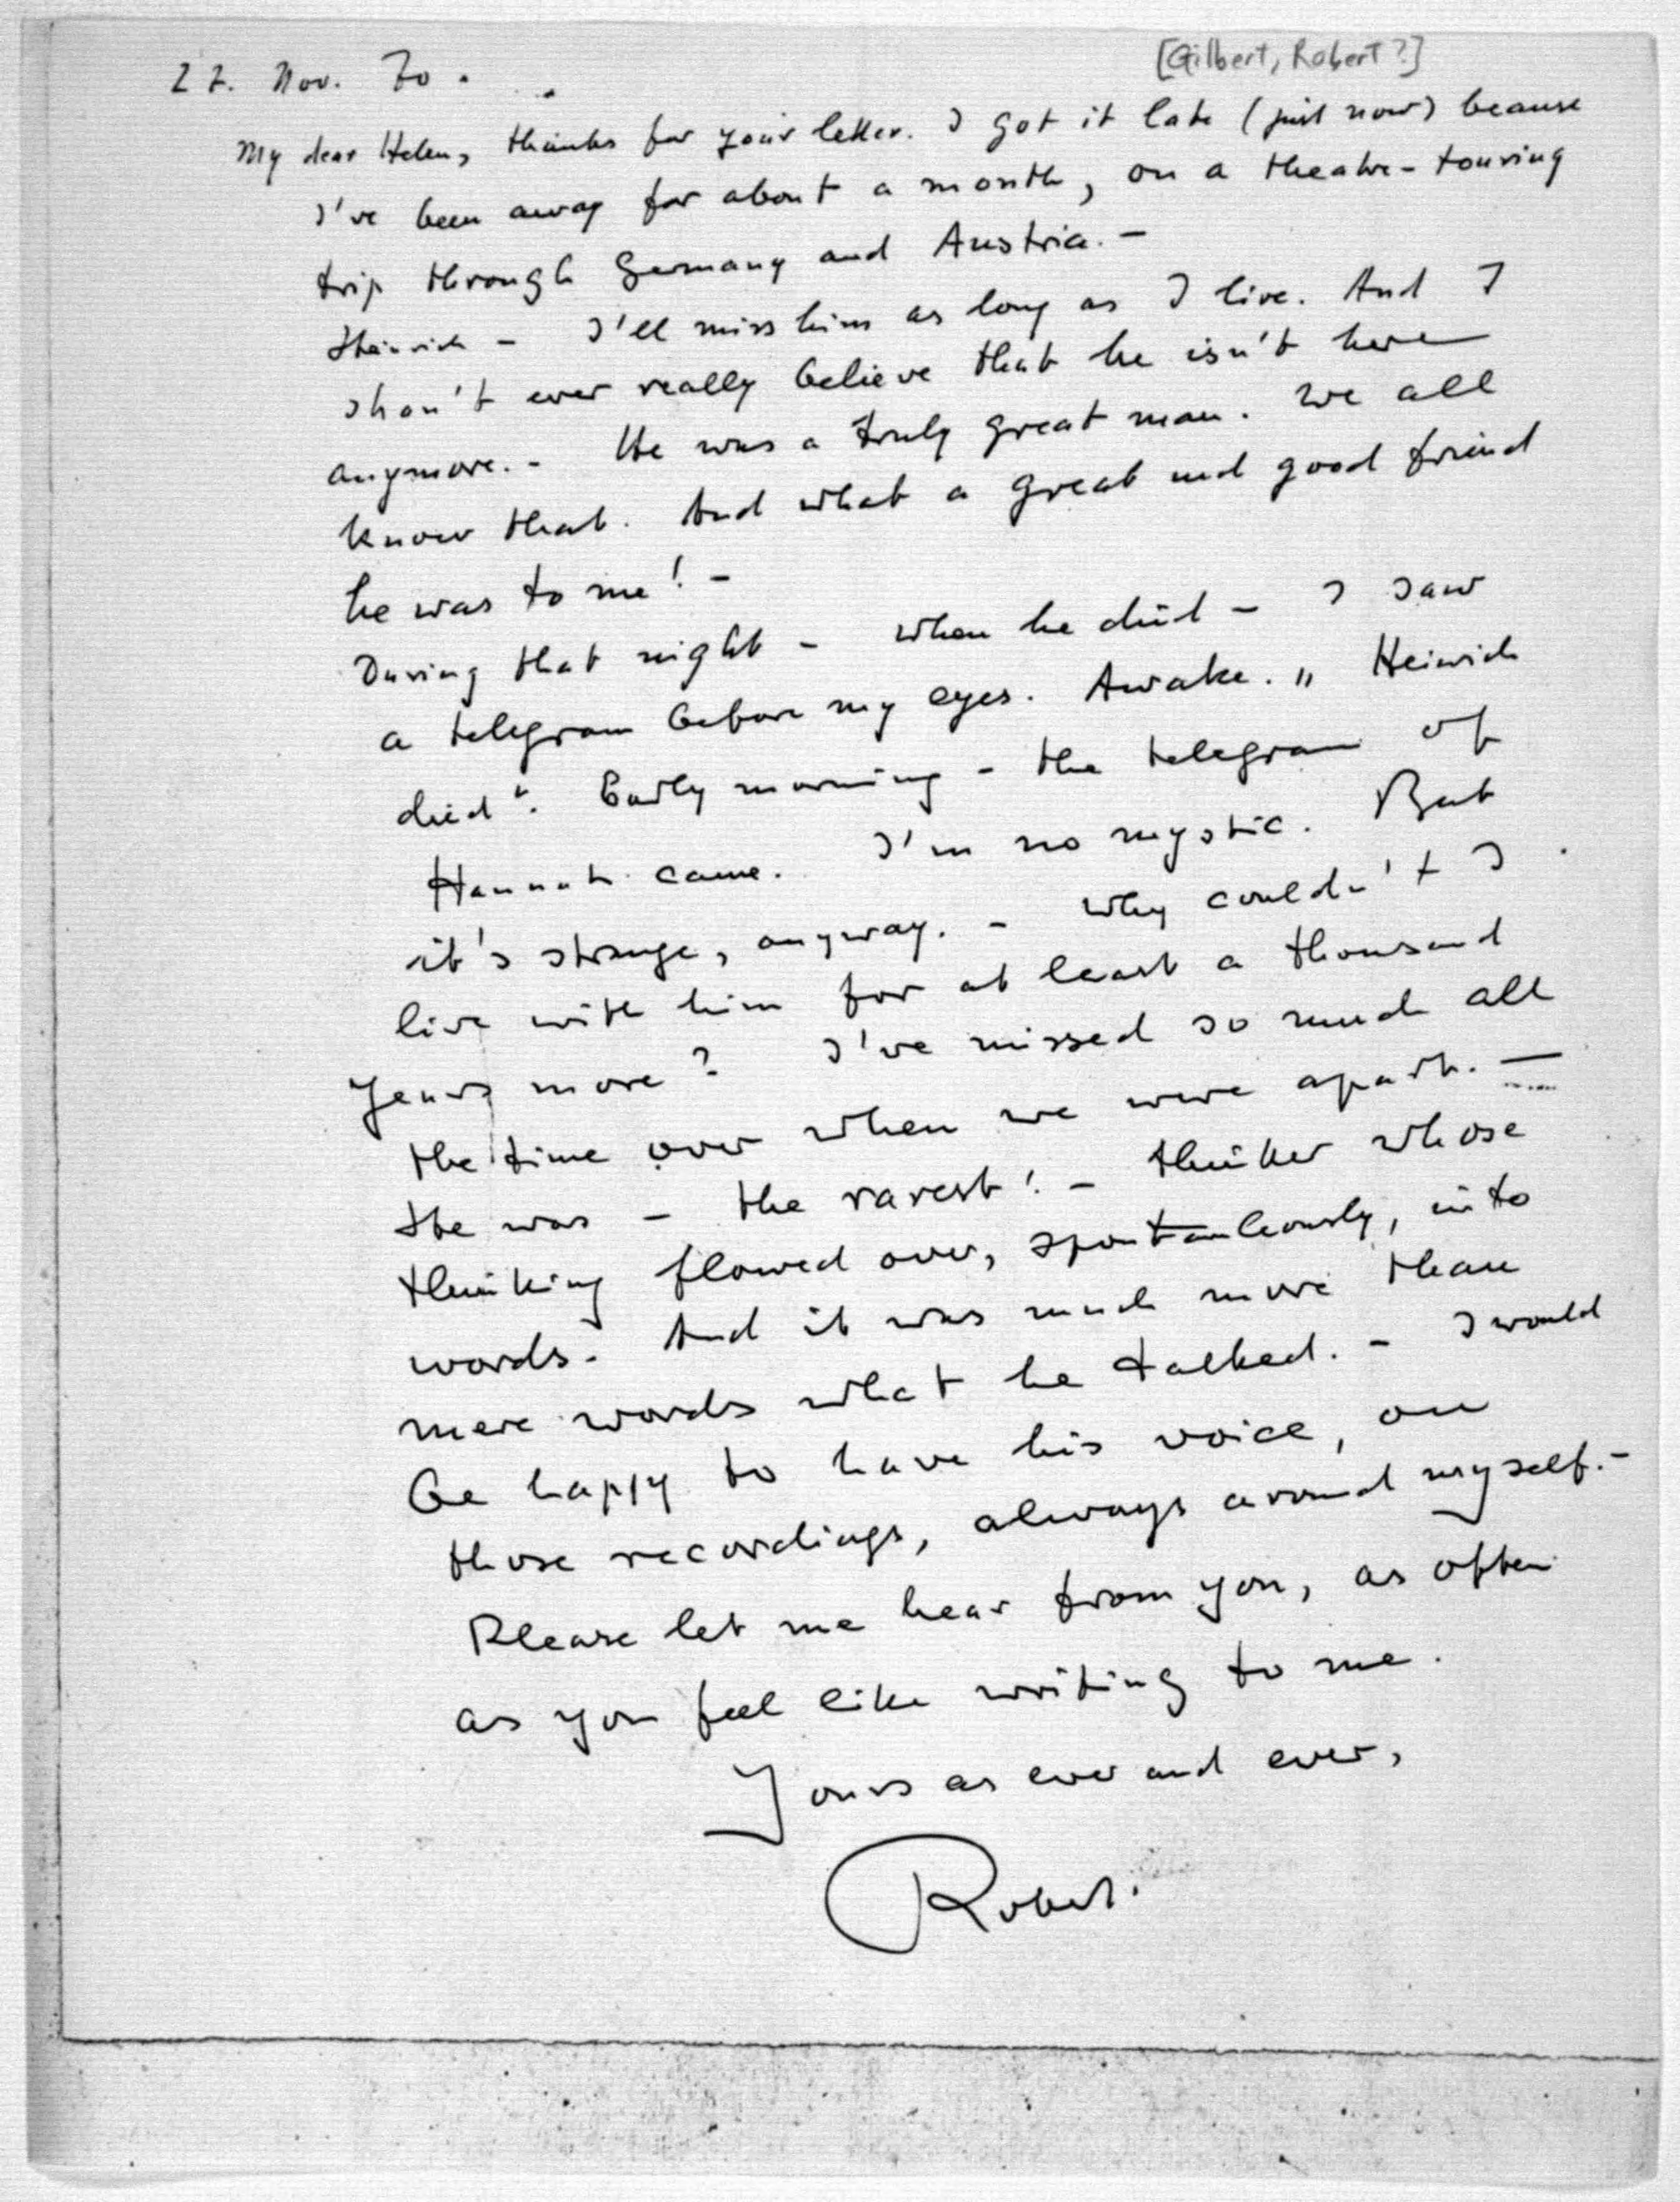 [Gilbert, Robert?]
27. Nov. 70.
My dear Helen, thanks for your letter. I got it late (just now) because
I've been away for about a month, on a theatre-touring
trip through Germany and Austria. -
Heinrich - I'll miss him as long as I live. And I
shan't ever really believe that he isn't here
anymore. - He was a truly great man. We all
know that. And what a great and good friend
he was to me! -
During that night - when he died - I saw
a telegram before my eyes. Awake. „Heinrich
died“. Early morning - the telegram of
Hannah came. I'm no mystic. But
it's strange, anyway. - Why couldn't I
live with him for at least a thousand
years more? I've missed so much all
the time over when we were apart. —
He was - the rarest! - thinker whose
thinking flowed over, spontaneously, into
words. And it was much more than
mere words what he talked. - I would
be happy to have his voice, on
those recordings, always around myself. -
Please let me hear from you, as often
as you feel like writing to me.
Yours as ever and ever,
Robert.